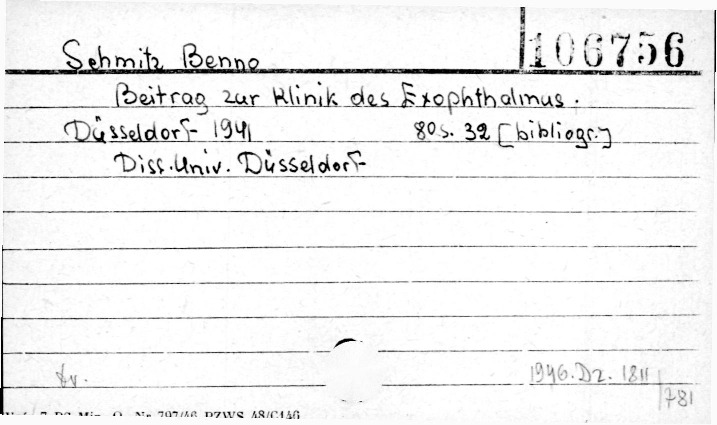 106756
Schmitz Benno
Beitrag zur Klinik des Exophthalmus.
Düsseldorf 1941 80 s. 32 [bibliogr.]
Diss. Univ. Düsseldorf
1946. Dz. 1811
/781
797/46 PZWS 48/C146